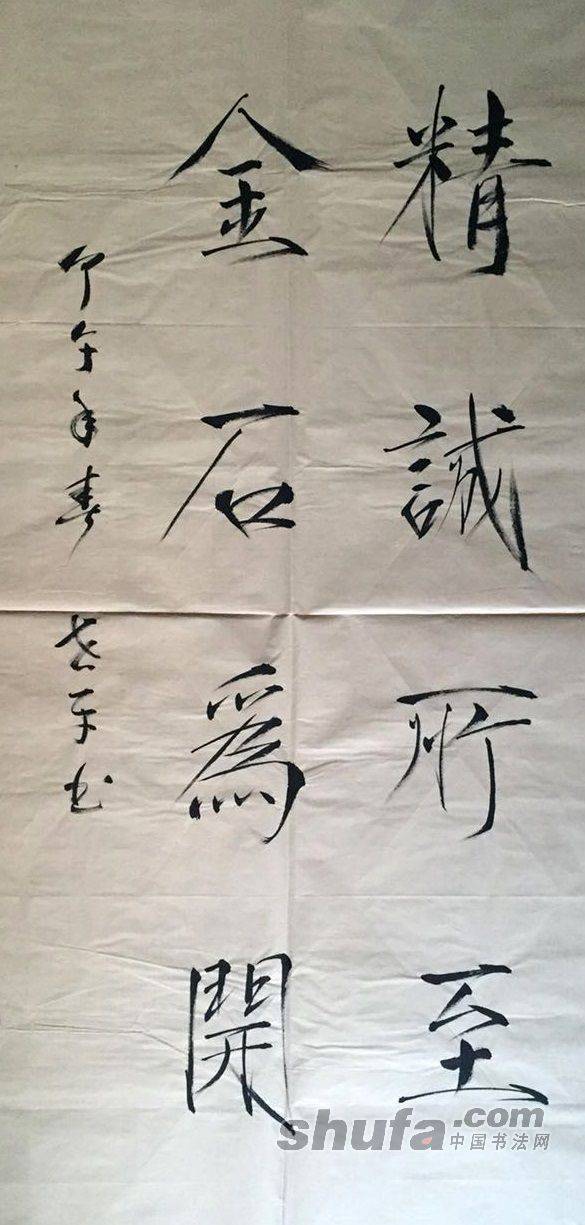 精誠所至
金石爲開
甲午年春
平书
shufa.com
中国书法网